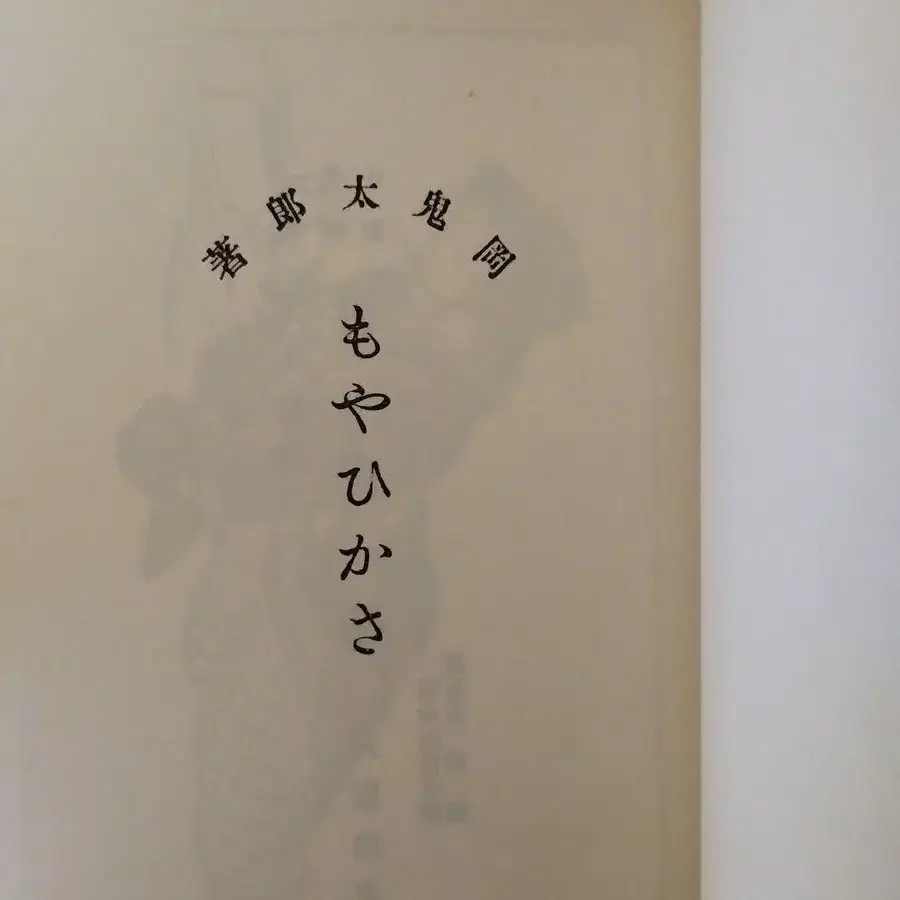 岡鬼太郎著
もやひかさ